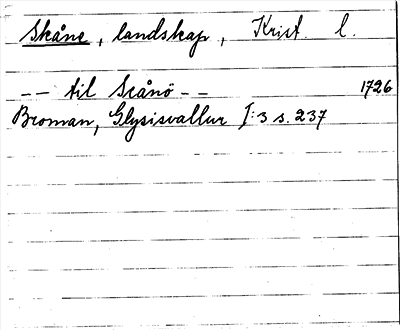 Skåne, landskap, Krist. l.
-- til Scånö -- 1726
Broman, Glysisvallur I:3 s. 237